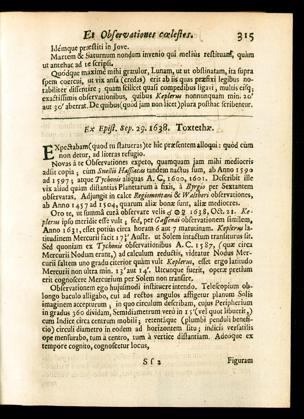 Et Observationes cœlestes. 315
Idémque præstiti in Jove.
Martem & Saturnum nondum invenio qui melius restituam, quàm
ut antehac ad te scripsi.
Quódque maximè mihi gratulor, Lunam, ut ut obstinatam, ita supra
spem coercui, ut vix ansa (credas) erit ab iis quas præfixi legibus no-
tabiliter dissentire; quum scilicet quasi compedibus ligavi, multis eisq;
exactissimis observationibus, quibus Keplerus nonnunquam min. 20′
aut 30′ aberrat. De quibus (quod jam non licet) plura posthac scribentur.
Ex Epist. Sep. 29. 1638. Toxtethæ.
EXpectabam (quod tu statueras) te hîc præsentem alloqui: quod cùm
non detur, ad literas refugio.
Novas à te Observationes expeto, quamquam jam mihi mediocris
adsit copia; cùm Snellii Hassiacas tandem nactus sum, ab Anno 1590
ad 1597; atque Tychonis aliquas A. C. 1600, 1601. Descripsit ille
vix aliud quàm distantias Planetarum à fixis, à Byrgio per Sextantem
observatas. Adjungit in calce Regiomontani & Waltheri observationes,
ab Anno 1457 ad 1504, quarum aliæ bonæ sunt, aliæ mediocres.
Oro te, ut summâ curâ observare velis ☌ ☉ ☿ 1638, Oct. 21. Ke-
plerus ipsi meridie esse vult; sed, per Gassendi observationem similem,
Anno 1631, esset potius circa horam 6 aut 7 matutinam. Kepleru la-
titudinem Mercurii facit 17′ Austr. ut Solem intactum transiturus sit.
Sed quoniam ex Tychonis observationibus A. C. 1587, (quæ circa
Mercurii Nodum erant,) ad calculum reductis, videatur Nodus Mer-
curii saltem uno gradu citerior quàm vult Keplerus, esset ergo latitudo
Mercurii non ultra min. 13′ aut 14′. Utcunque fuerit, operæ pretium
erit cognoscere Mercurium per Solem non transire.
Observationem ego hujusmodi instituere intendo. Telescopium ob-
longo baculo alligabo, cui ad rectos angulos affigetur planum Solis
imaginem accepturum, in quo circulum describam, cujus Peripherium
in gradus 360 dividam, Semidiametrum verò in 15′ (vel quot libuerit,)
cum Indice circa centrum mobili; retentæque (plumbi penduli benefi-
cio) circuli diametro in eodem ad horizontem situ; indicii versatilis
ope mensurabo, tum à centro, tum à vertice distantiam. Adeoque ex
tempore cognito, cognoscetur locus,
S s 2 Figuram